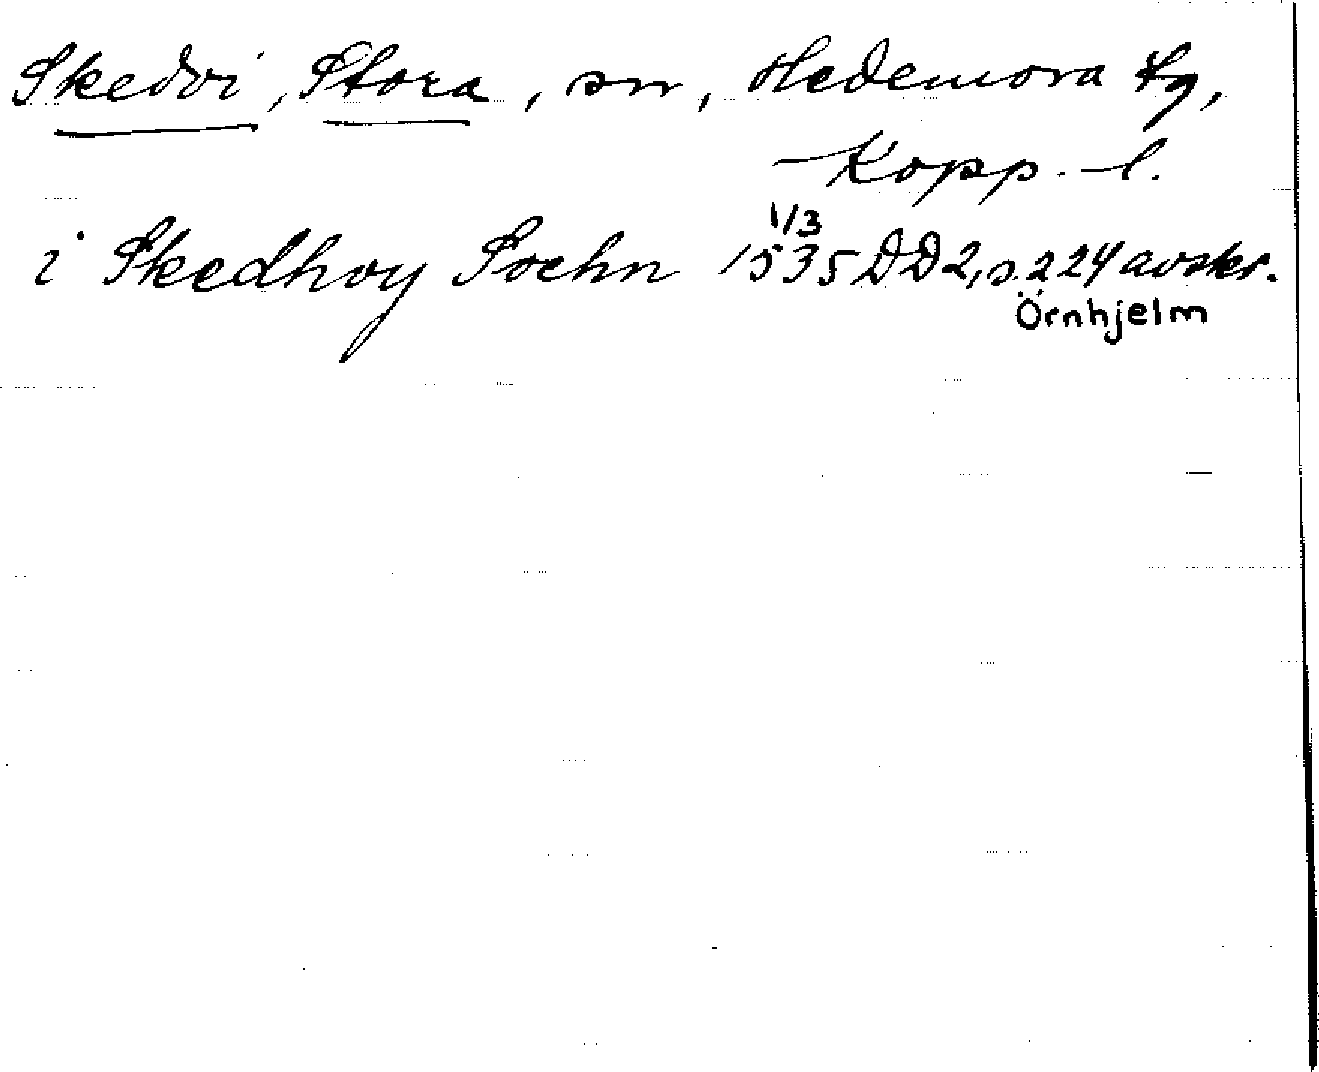 Skedvi, Stora, sn, Hedemora tg,
Kopp. l.
i Skedhvy Sochn 1535 1/3 DD2, s. 224 avskr.
Örnhjelm